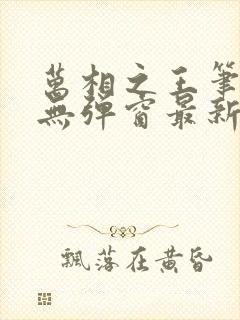 萬相之王筆
無彈窗最新
飄落在黄昏